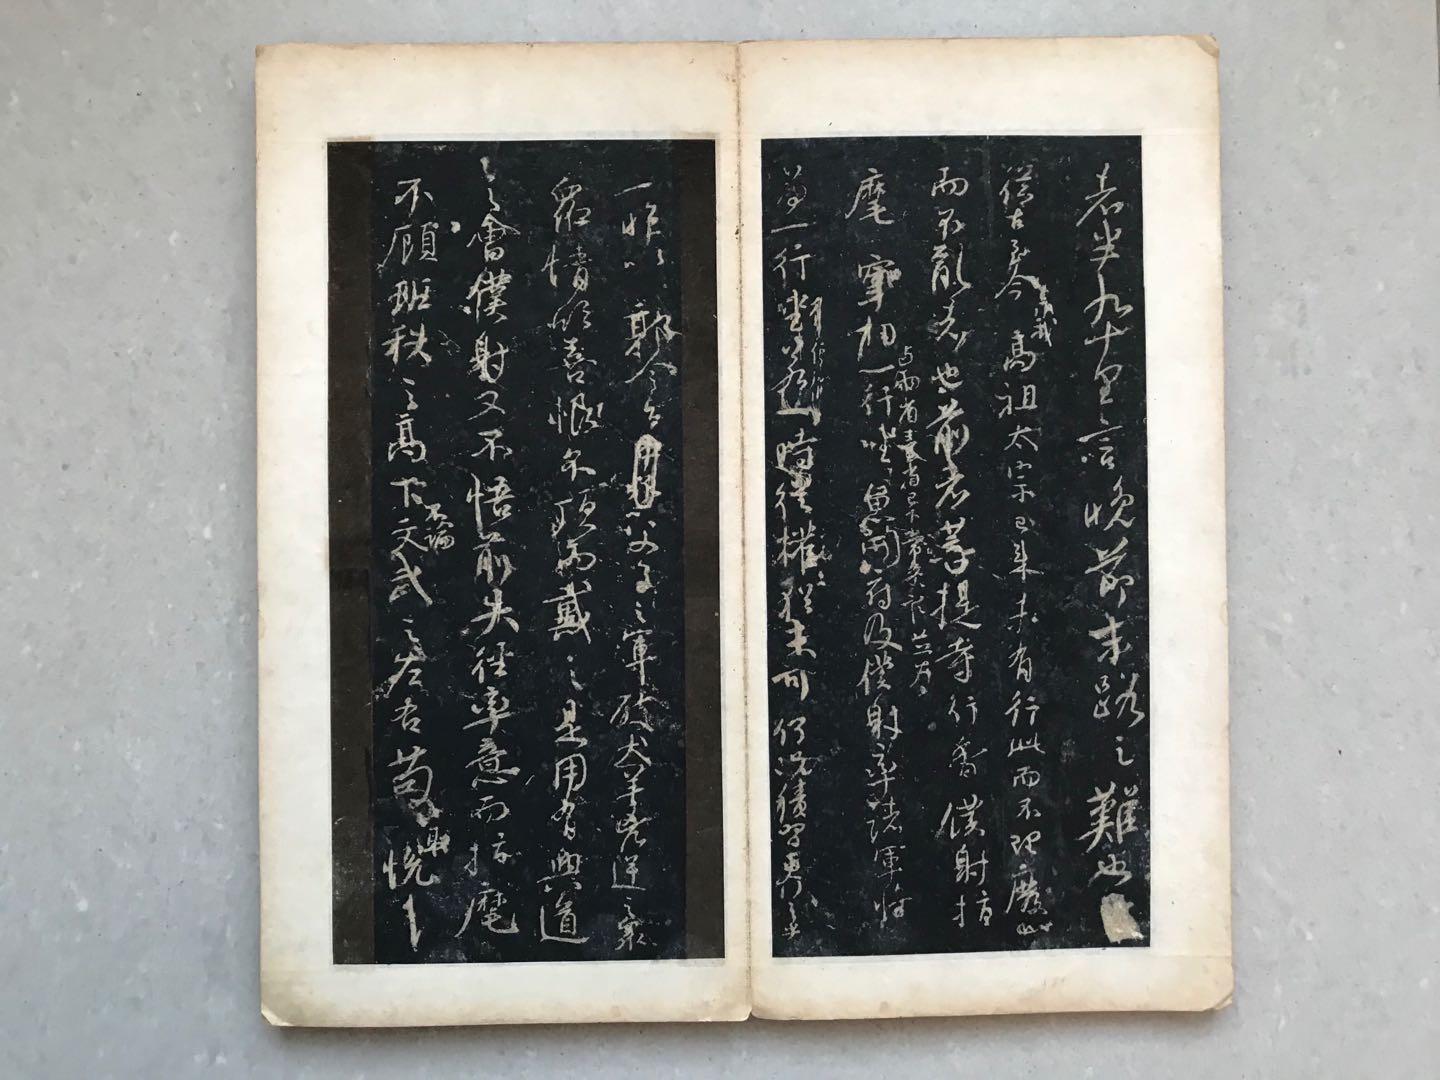 者半九十里言晚節末路之難也
從古至今暨我高祖太宗已來未有行此而不理廢此
而不亂者也前者菩提寺行香僕射指
麾宰相與兩省臺省已下常參官並為一行坐魚開府及僕射率諸軍將
為一行坐若一時從權猶未可何況積習更行之乎
一昨以郭令公以父子之軍破犬羊兇逆之衆
衆情欣喜恨不頂而戴之是用有興道
之會僕射又不悟前失徑率意而指麾
不顧班秩之高下不論文武之左右苟以取悅